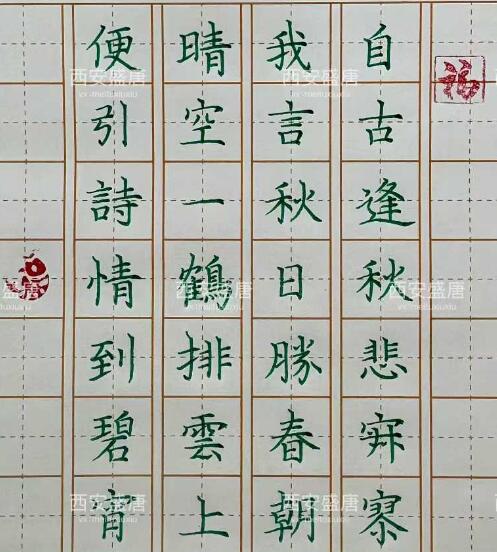 自古逢秋悲寂寥
我言秋日勝春朝
晴空一鶴排雲上
便引詩情到碧宵
福
西安盛唐
西安盛唐
西安盛唐
西安盛唐
西安盛唐
西安盛唐